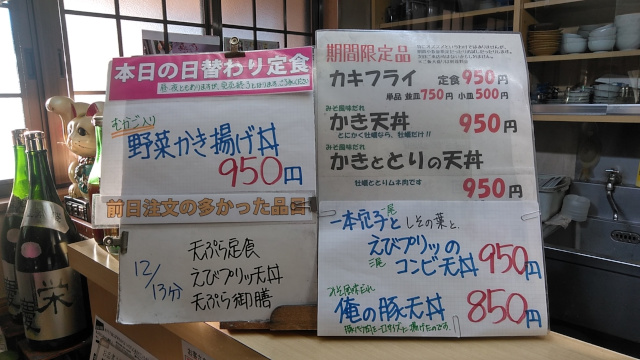 本日の日替わり定食
むかご入り
野菜かき揚げ丼
950円
前日注文の多かった品目
12/13分
天ぷら定食
えびプリッ天丼
天ぷら御膳
期間限定品
カキフライ 定食950円
単品 並皿750円 小皿500円
みそ風味だれ
かき天丼 950円
とにかく牡蠣なら、牡蠣だけ!!
みそ風味だれ
かきととりの天丼
牡蠣ととりムネ肉です
950円
一本穴子と しその葉と、
えびプリッの
三尾
コンビ天丼 950円
みそ風味だれ
俺の豚天丼 850円